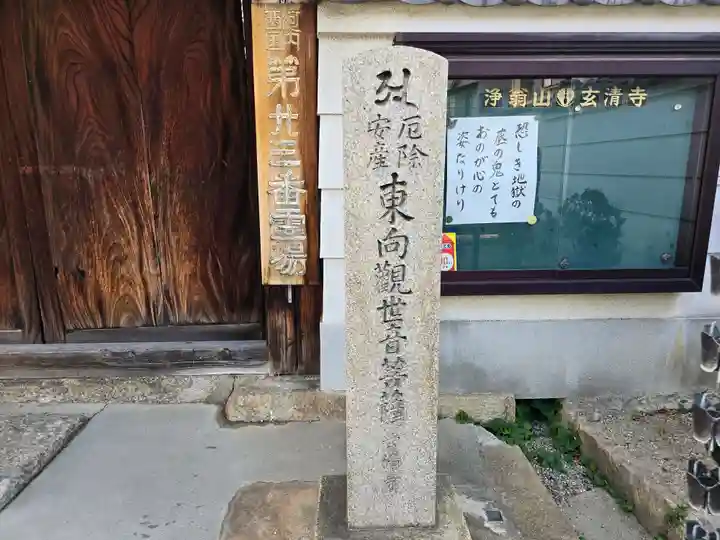 河内
西国
第廿三番霊場
厄除
安産
東向觀世音菩薩
浄翁山 玄清寺
恐しき地獄の
底の鬼とても
おのが心の
姿なりけり